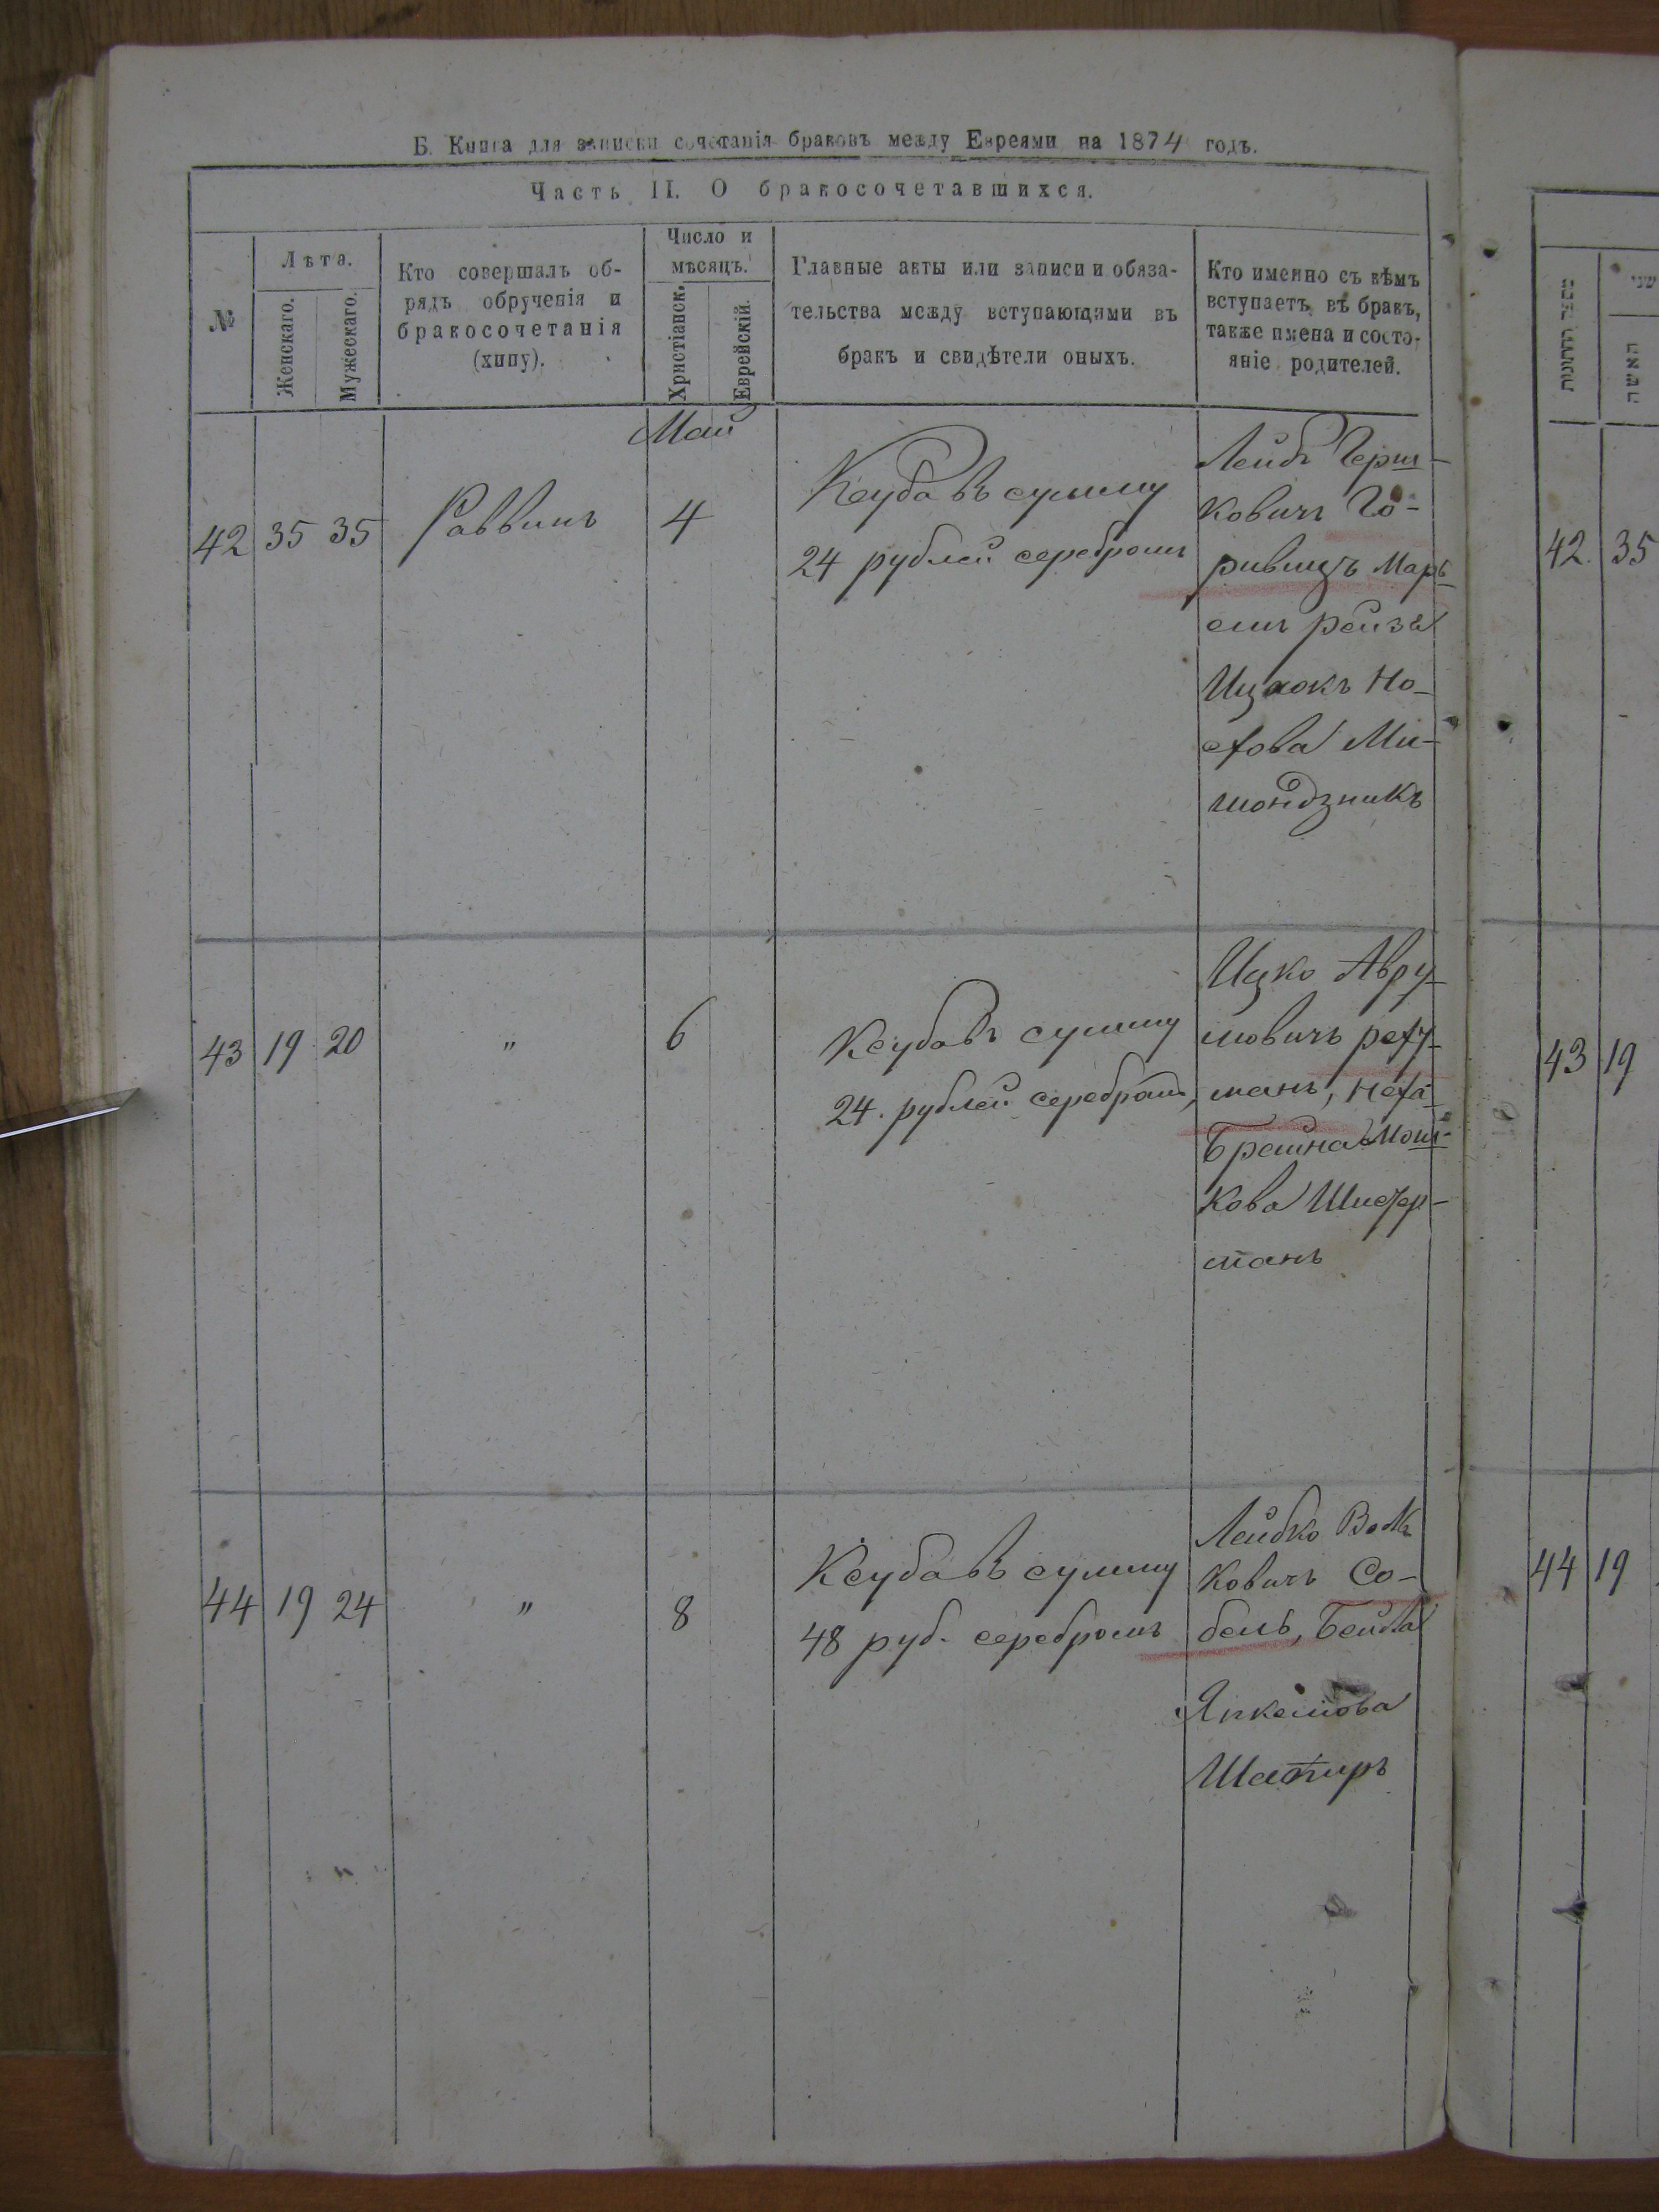 Б. Книга для записки сочетанія браковъ между Евреями на 1874 годъ.
Часть II. О бракосочетавшихся.
№
Лѣта.
Женскаго.
Мужескаго.
Кто совершалъ об-
рядъ обрученія и
бракосочетанія
(хипу).
Число и
мѣсяцъ.
Христіанск.
Еврейскій.
Главные акты или записи и обяза-
тельства между вступающими въ
бракъ и свидѣтели оныхъ.
Кто именно съ кѣмъ
вступаетъ въ бракъ,
также имена и состо-
яніе родителей.
Май
42 35 35 Раввинъ 4
Ксуба въ сумму
24 рублей серебромъ
Лейбъ Герш-
ковичъ Го-
ривицъ Марь
емъ рейза
Ицхокъ Но-
хова Ми-
шондзникъ
43 19 20 " 6
Ксуба въ сумму
24. рублей серебромъ,
Ицко Авру-
мовичъ реху-
манъ, Неха
Брейна Мош-
кова Шихер-
манъ
44 19 24 " 8
Ксуба въ сумму
48 руб. серебромъ
Лейбко Воль
ковичъ Со-
бель, Бейла
Янкелиова
Шапиръ
האשה
42. 35
43 19
44 19